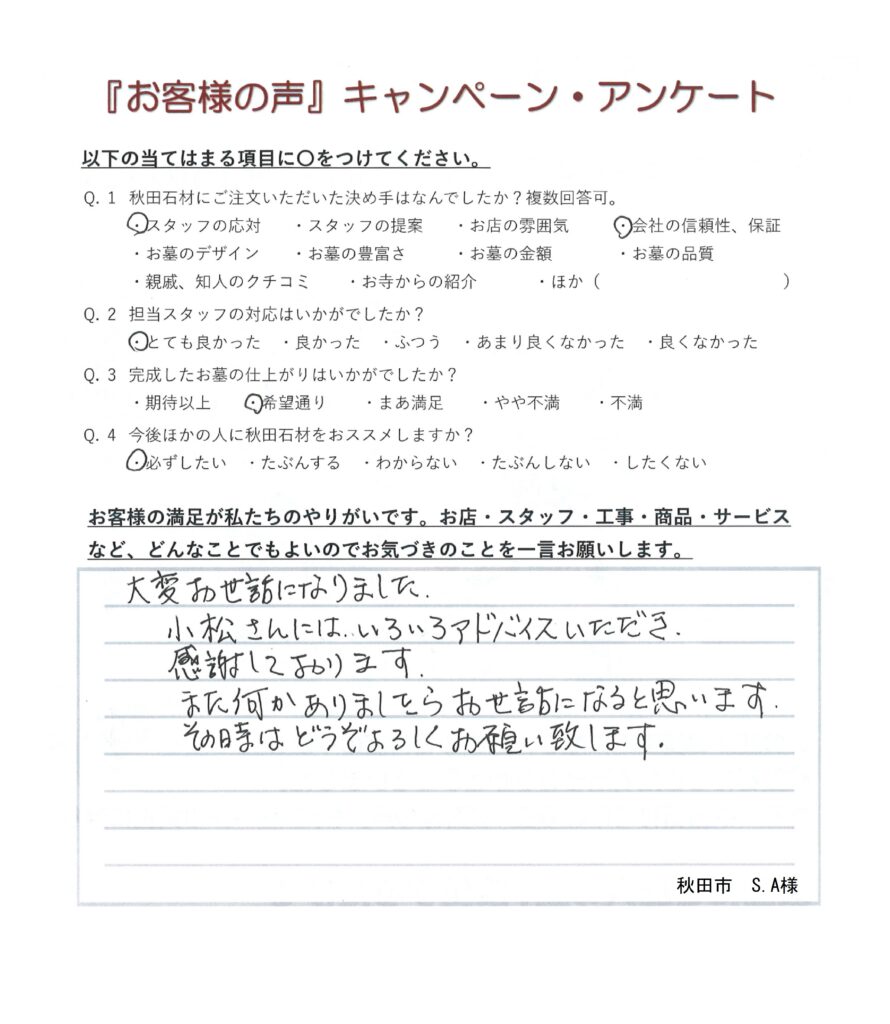 『お客様の声』キャンペーン・アンケート
以下の当てはまる項目に〇をつけてください。
Q. 1 秋田石材にご注文いただいた決め手はなんでしたか？複数回答可。
・スタッフの応対 ・スタッフの提案 ・お店の雰囲気 ・会社の信頼性、保証
・お墓のデザイン ・お墓の豊富さ ・お墓の金額 ・お墓の品質
・親戚、知人のクチコミ ・お寺からの紹介 ・ほか（ ）
Q. 2 担当スタッフの対応はいかがでしたか？
・とても良かった ・良かった ・ふつう ・あまり良くなかった ・良くなかった
Q. 3 完成したお墓の仕上がりはいかがでしたか？
・期待以上 ・希望通り ・まあ満足 ・やや不満 ・不満
Q. 4 今後ほかの人に秋田石材をおススメしますか？
・必ずしたい ・たぶんする ・わからない ・たぶんしない ・したくない
お客様の満足が私たちのやりがいです。お店・スタッフ・工事・商品・サービス
など、どんなことでもよいのでお気づきのことを一言お願いします。
大変お世話になりました.
小松さんには..いろいろアドバイスいただき.
感謝しております.
また何かありましたらお世話になると思います.
その時はどうぞよろしくお願い致します.
秋田市 S.A様